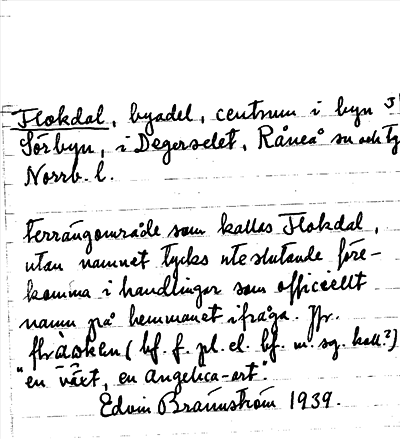 Flokdal, byadel, centrum i byn
Sörbyn, i Degerselet, Råneå sn och
Norrb. l.
terrängområde som kallas Flokdal,
utan namnet tycks uteslutande före-
komma i handlingar som officiellt
namn på hemmanet ifråga. Jfr.
flråsken (bf. f. pl. el. bf. m. sg. koll?)
"en växt, en angelica-art".
Edvin Brännström 1939.